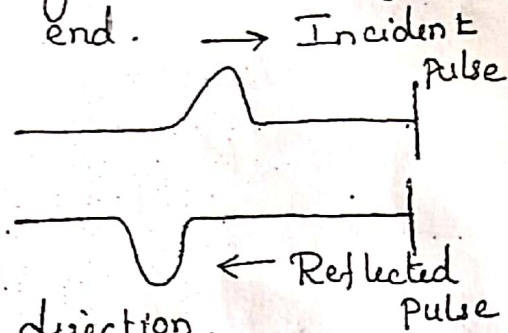 end. → Incident
pulse
← Reflected
pulse
direction.